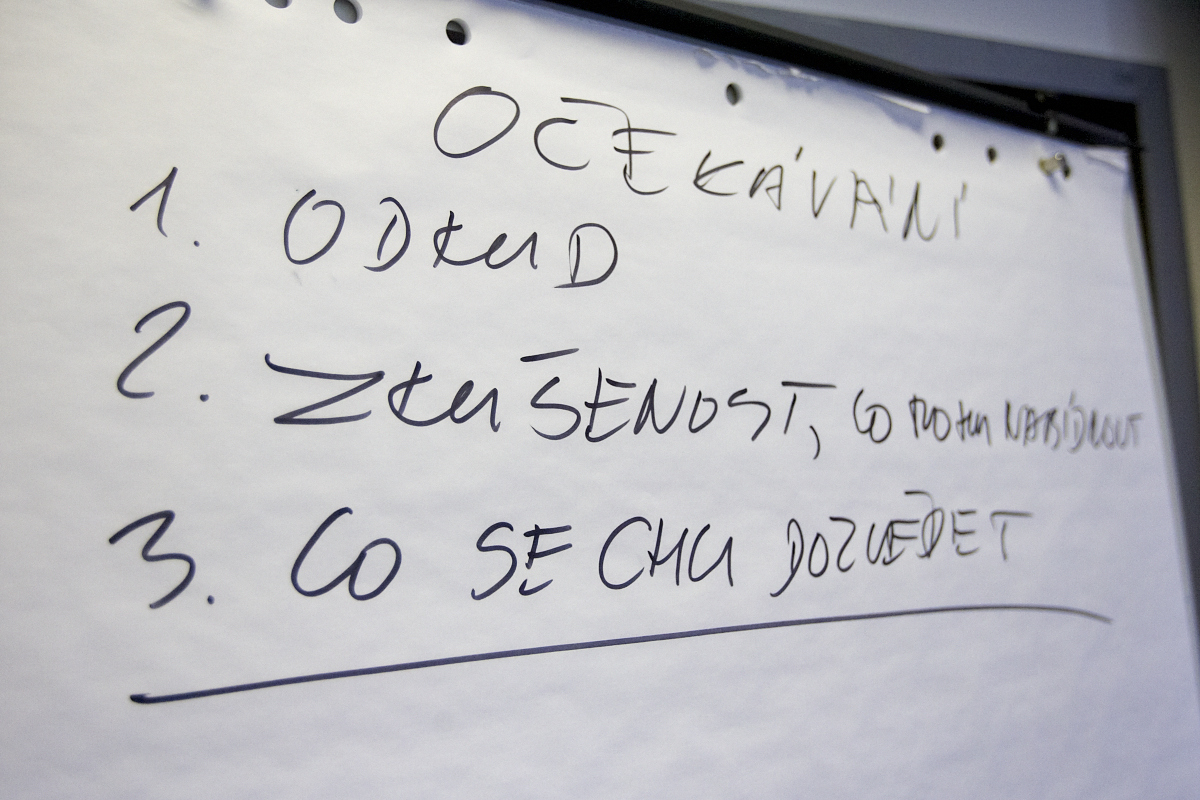 OČEKÁVÁNÍ
1. ODKUD
2. ZKUŠENOST, CO MOHU NABÍDNOUT
3. CO SE CHCI DOZVĚDĚT